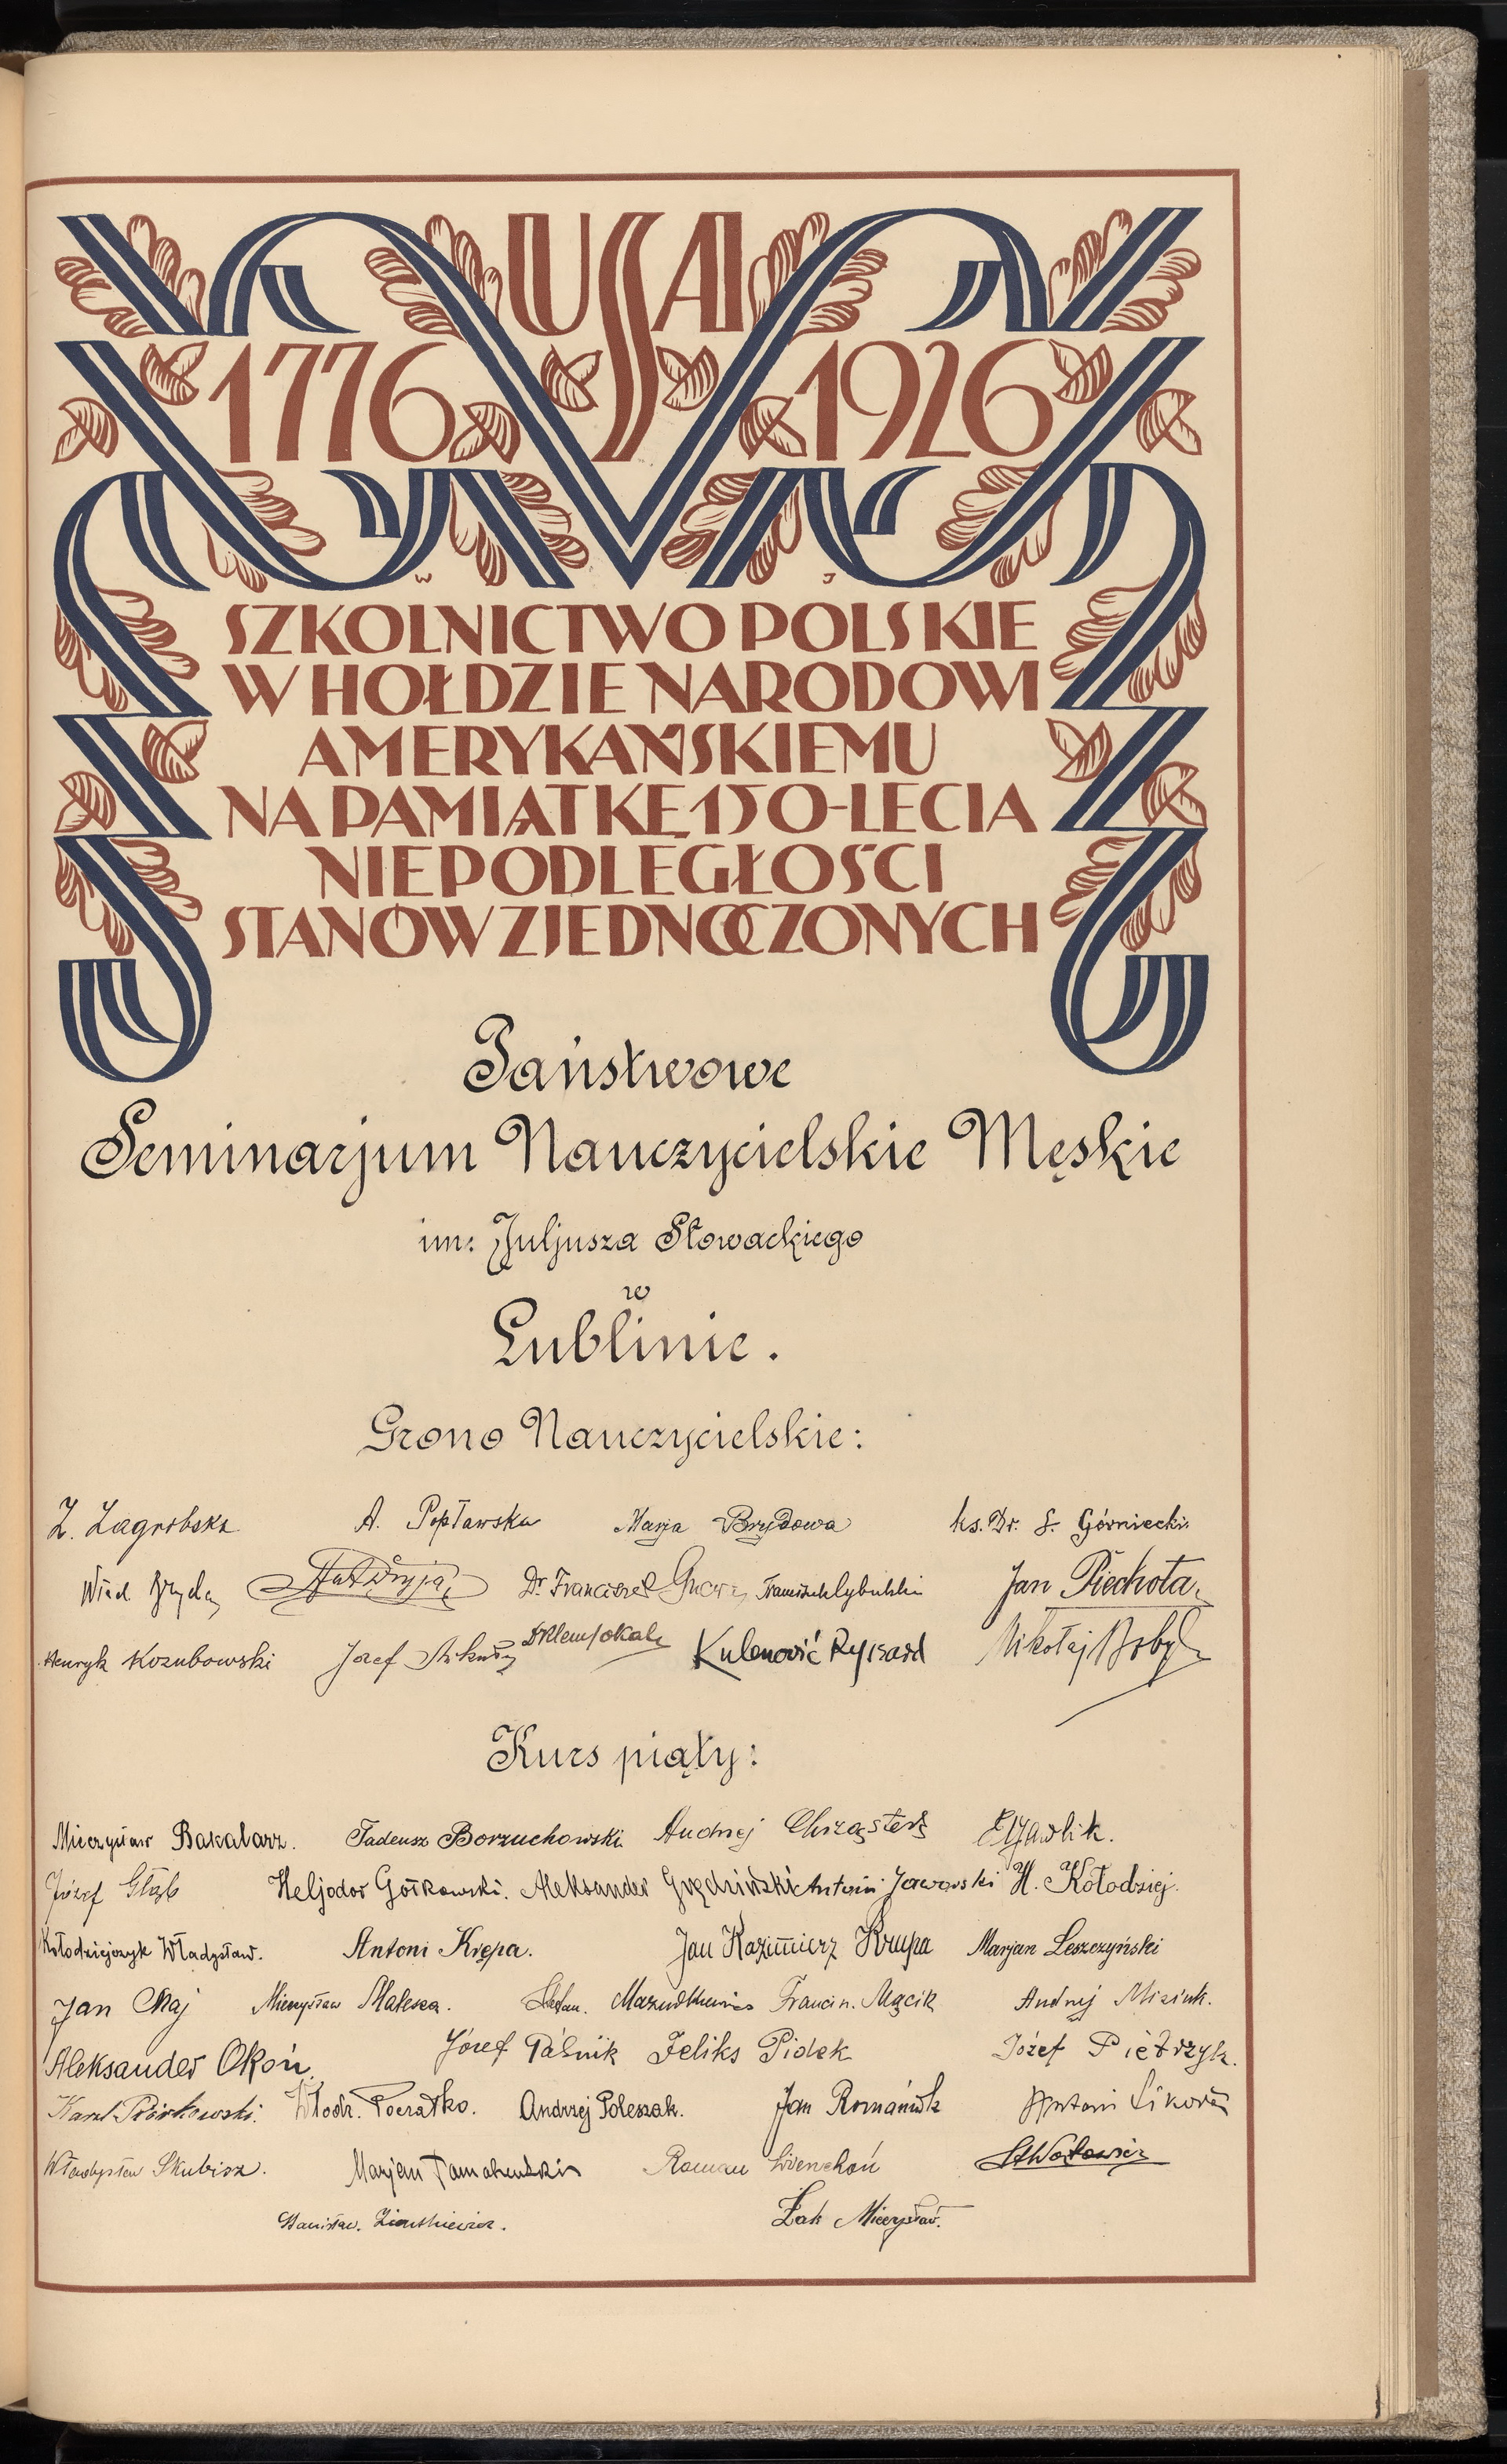 USA
1776 1926
W J
SZKOLNICTWO POLSKIE
W HOŁDZIE NARODOWI
AMERYKAŃSKIEMU
NA PAMIĄTKĘ 150-LECIA
NIEPODLEGŁOŚCI
STANÓW ZJEDNOCZONYCH
Państwowe
Seminarjum Nauczycielskie Męskie
im: Juljusza Słowackiego
w
Lublinie.
Grono Nauczycielskie:
Z. Zagrobska A. Popławska Marja Brydowa ks. Dr. S. Górniecki
Wład Bryda Dr. Franciszek Jan Piechota
Henryk Kozubowski Józef Dr Klem Sokal Kulenović Ryszard Mikołaj Bobyk
Kurs piąty:
Mieczysław Bakalarz. Tadeusz Borzuchowski Andrzej Chrząstek E. Gawlik.
Józef Głąb Heljodor Gołkowski. Aleksander Grędziński Antoni Jaworski H. Kołodziej.
Kołodziejczyk Władysław. Antoni Krępa. Jan Kazimierz Krupa Marjan Leszczyński
Jan Maj Mieczysław Malesza. Stefan. Mazurkiewicz Francin. Mącik Andrzej Misiuk.
Aleksander Okoń. Józef Palnik Feliks Pidek Józef Pietrzyk.
Karol Piórkowski. Włodz. Początko. Andrzej Poleszak. Jan Romaniuk Antoni Sikora
Władysław Skubisz. Marjan Roman Wierchoń St Wołowicz
Stanisław. Zientkiewicz. Żak Mieczysław.